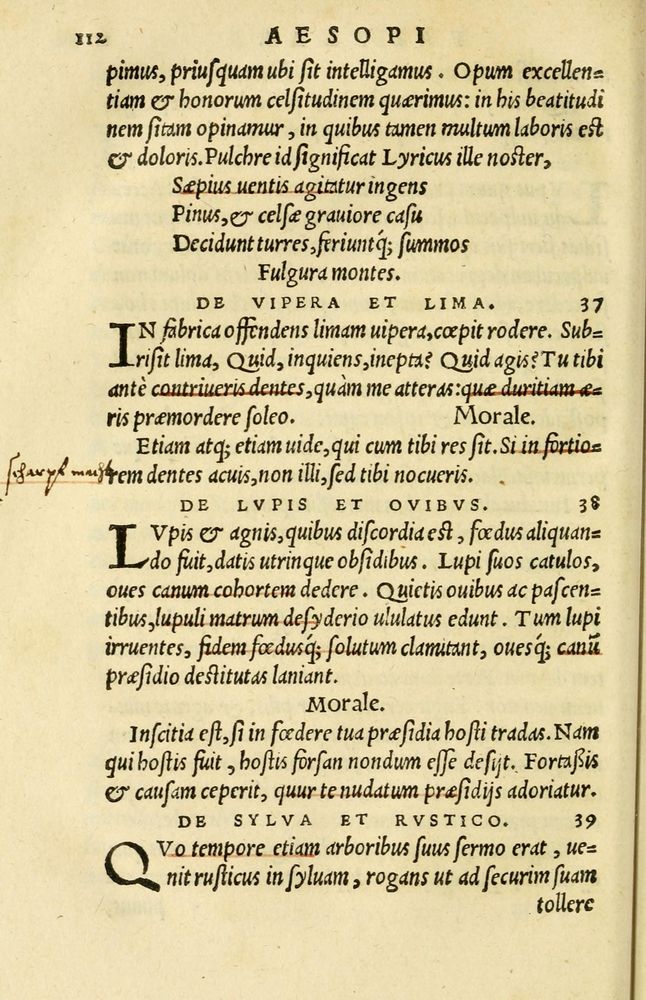 112 AESOPI
pimus, priusquam ubi sit intelligamus. Opum excellen=
tiam & honorum celsitudinem quærimus: in his beatitudi
nem sitam opinamur, in quibus tamen multum laboris est
& doloris. Pulchre id significat Lyricus ille noster,
Sæpius uentis agitatur ingens
Pinus, & celsæ grauiore casu
Decidunt turres, feriuntq; summos
Fulgura montes.
DE VIPERA ET LIMA. 37
IN fabrica offendens limam uipera, cœpit rodere. Sub=
risit lima, Quid, inquiens, inepta? Quid agis? Tu tibi
antè contriueris dentes, quàm me atteras: quæ duritiam æ=
ris præmordere soleo. Morale.
Etiam atq; etiam uide, qui cum tibi res sit. Si in fortio=
rem dentes acuis, non illi, sed tibi nocueris.
DE LVPIS ET OVIBVS. 38
LVpis & agnis, quibus discordia est, fœdus aliquan=
do fuit, datis utrinque obsidibus. Lupi suos catulos,
oues canum cohortem dedere. Quietis ouibus ac pascen=
tibus, lupuli matrum desyderio ululatus edunt. Tum lupi
irruentes, fidem fœdusq; solutum clamitant, ouesq; canū
præsidio destitutas laniant.
Morale.
Inscitia est, si in fœdere tua præsidia hosti tradas. Nam
qui hostis fuit, hostis forsan nondum esse desijt. Fortaßis
& causam ceperit, quur te nudatum præsidijs adoriatur.
DE SYLVA ET RVSTICO. 39
QVo tempore etiam arboribus suus sermo erat, ue=
nit rusticus in syluam, rogans ut ad securim suam
tollere